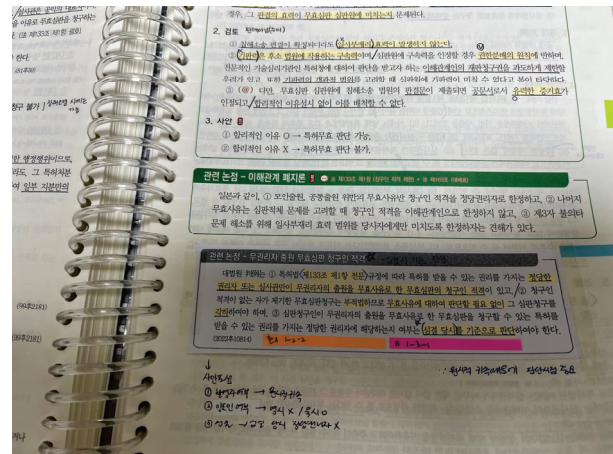 실시권은 공익의 대표자로서
을 이유로 무효심판을 청구하는
(§ 제133조 제1항 괄호)
한다.
(91후59)
청구 불가 ]
한 행정행위이므로,
라도, 그 특허처분
여 일부 지분만의
(99후2181)
(99후2181)
거나
경우, 그 판결의 효력이 무효심판 심판원에 미치는지 문제된다.
2. 검토
① 침해소송 판결이 확정되더라도 일사부재리 효력이 발생하지 않는다.
② 기판력은 후소 법원에 작용하는 구속력이며, 심판원에 구속력을 인정할 경우 권한분배의 원칙에 반하며,
전문적인 기술심리기관인 특허청에 대하여 판단을 받고자 하는 이해관계인의 재판청구권을 과도하게 제한할
우려가 있고, 또한 기판력의 객관적 범위를 고려할 때 심판원에 기판력이 미칠 수 없다고 봄이 타당하다.
③ (@) 다만, 무효심판 심판원에 침해소송 법원의 판결문이 제출되면 공문서로서 유력한 증거효가
인정되고, 합리적인 이유설시 없이 이를 배척할 수 없다.
3. 사안
① 합리적인 이유 O → 특허무효 판단 가능,
② 합리적인 이유 X → 특허무효 판단 불가,
관련 논점 - 이해관계 폐지론
일본과 같이, ① 모인출원, 공동출원 위반의 무효사유만 청구인 적격을 정당권리자로 한정하고, ② 나머지
무효사유는 심판적체 문제를 고려할 때 청구인 적격을 이해관계인으로 한정하지 않고, ③ 제3자 불의타
문제 해소를 위해 일사부재리 효력 범위를 당사자에게만 미치도록 한정하자는 견해가 있다.
관련 논점 - 무권리자 출원 무효심판 청구인 적격
대법원 判例는 ① 특허법 제133조 제1항 전문 규정에 따라 특허를 받을 수 있는 권리를 가지는 정당한
권리자 또는 심사관만이 무권리자의 출원을 무효사유로 한 무효심판의 청구인 적격이 있고, ② 청구인
적격이 없는 자가 제기한 무효심판청구는 부적법하므로 무효사유에 대하여 판단할 필요 없이 그 심판청구를
각하하여야 하며, ③ 심판청구인이 무권리자의 출원을 무효사유로 한 무효심판을 청구할 수 있는 특허를
받을 수 있는 권리를 가지는 정당한 권리자에 해당하는지 여부는 심결 당시를 기준으로 판단하여야 한다.
(2022후10814)
↓
사안포섭
① 발명자여부 → 원시적귀속
② 양도인여부 → 명시 X / 묵시 O